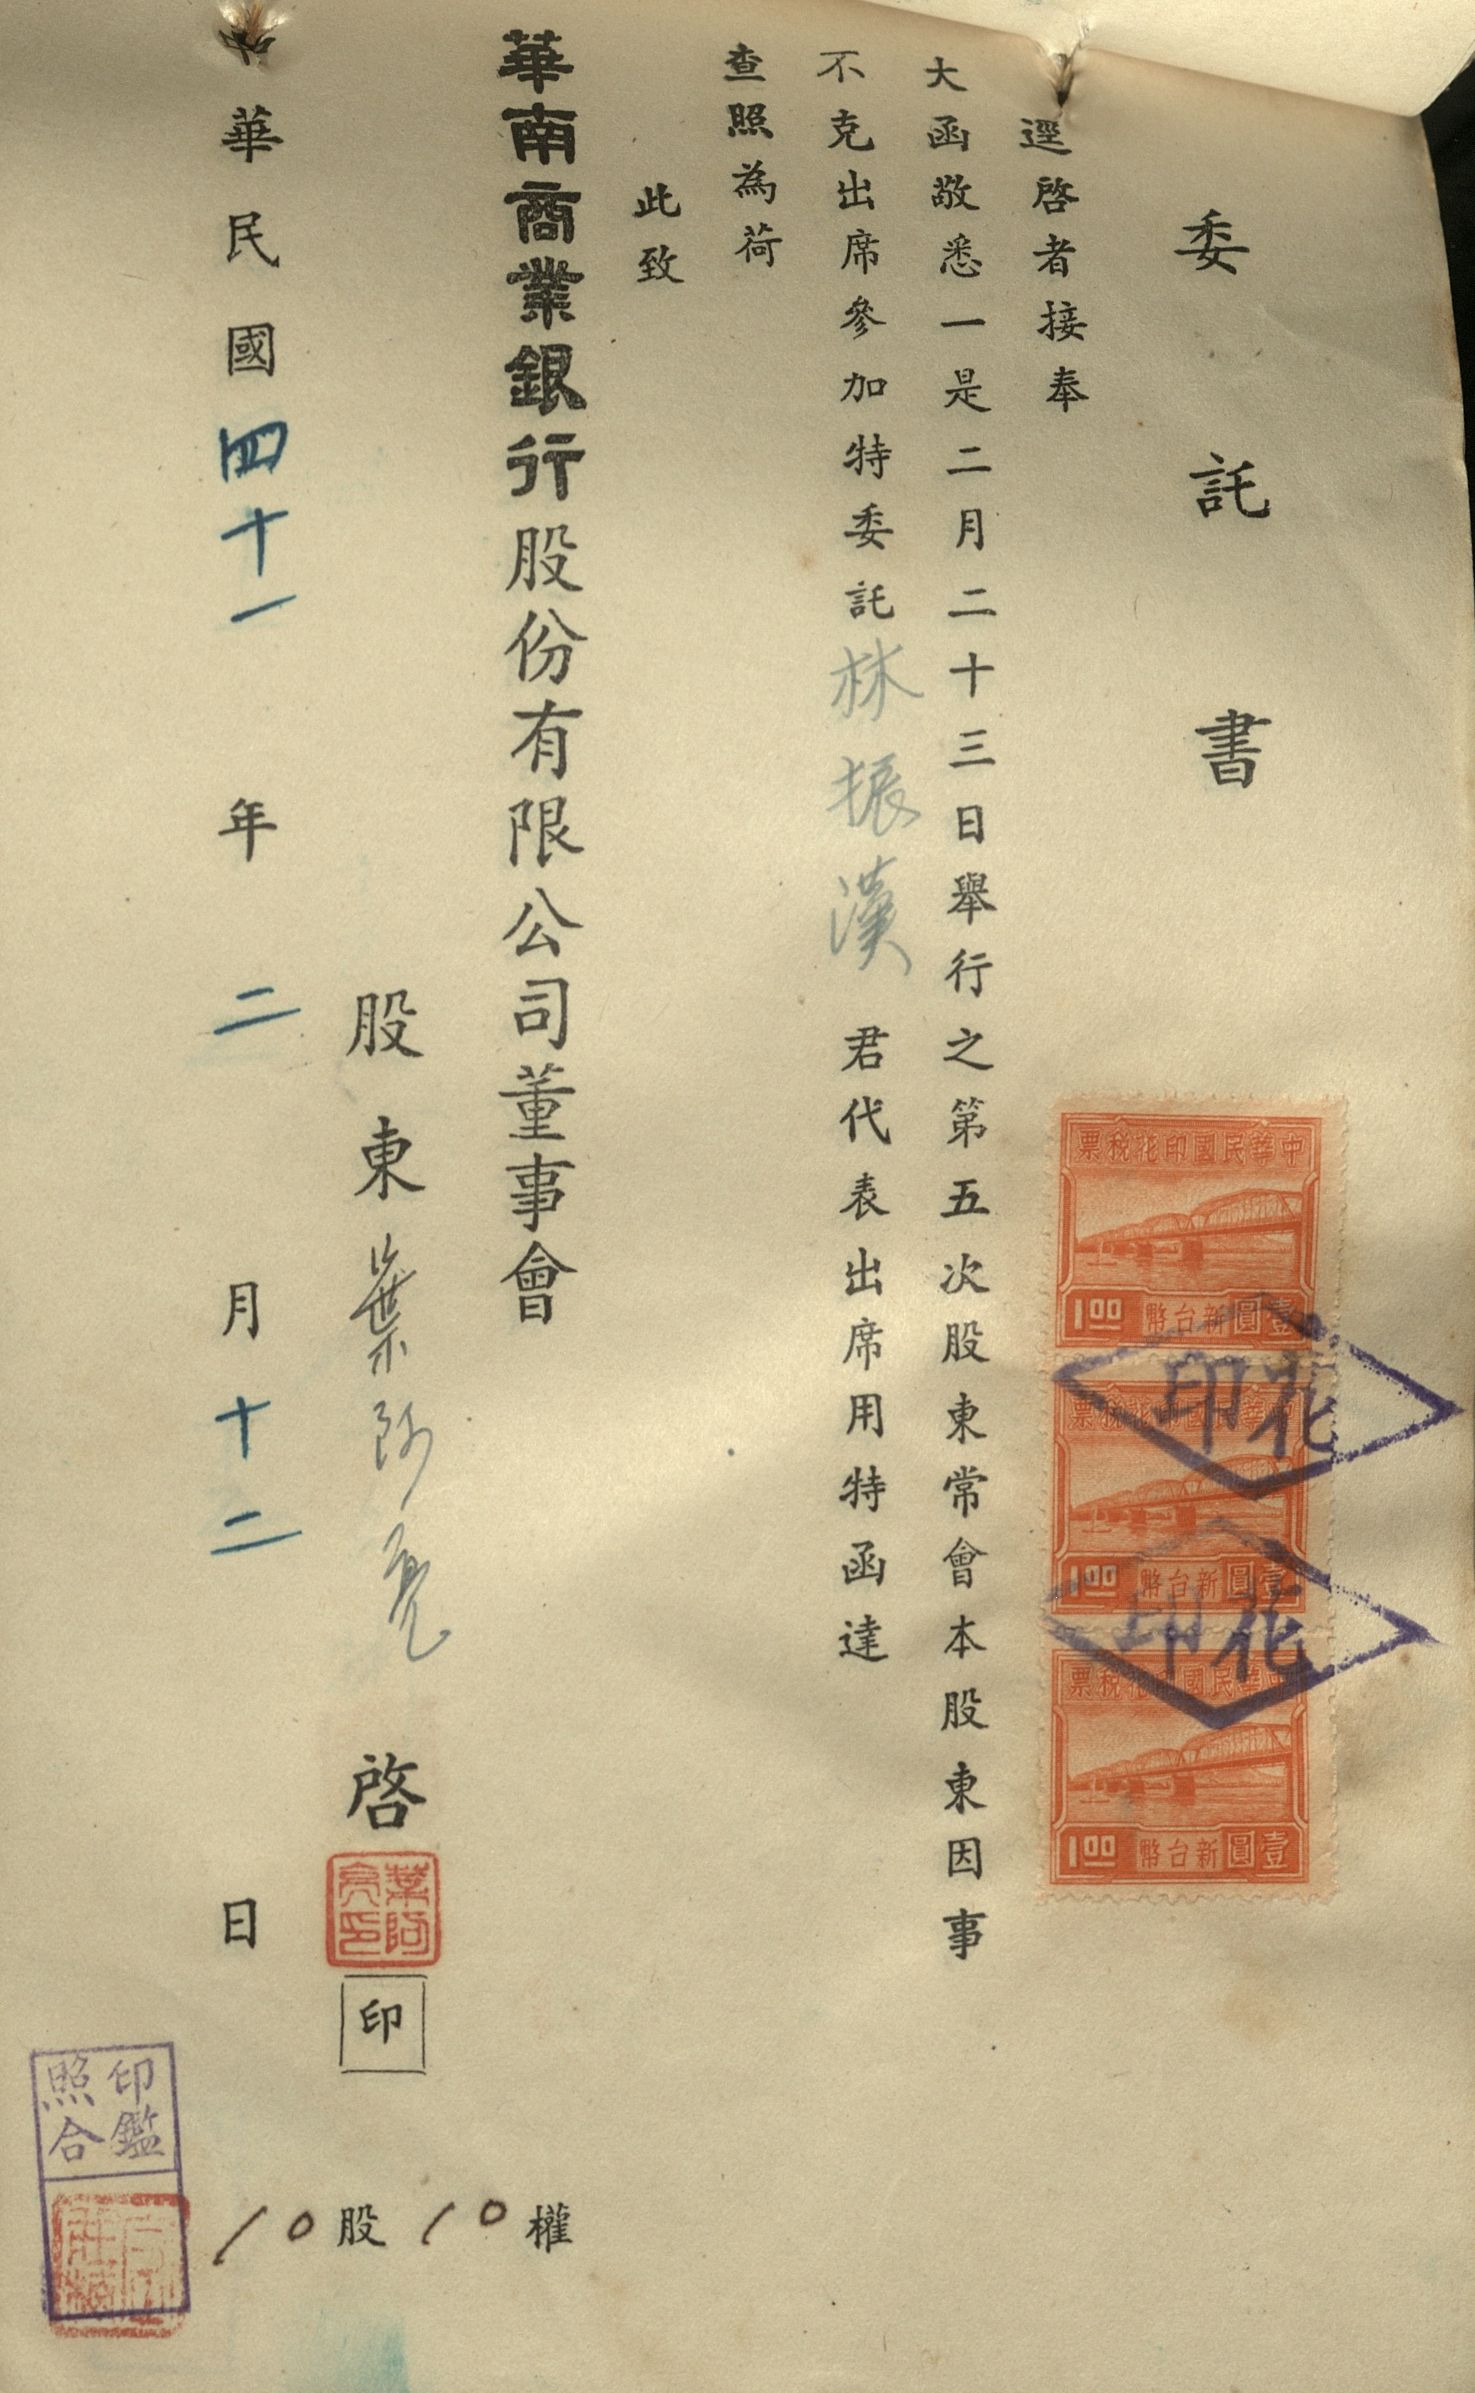 委託書
逕啓者接奉
大函敬悉一是二月二十三日舉行之第五次股東常會本股東因事
不克出席參加特委託林振漢君代表出席用特函達
查照為荷
此致
華南商業銀行股份有限公司董事會
股東葉阿亮啓
葉阿亮印
印
華民國四十一年二月十二日
10股10權
印鑑照合
中華民國印花稅票
1.00 壹圓新台幣
中華民國印花稅票
1.00 壹圓新台幣
中華民國印花稅票
1.00 壹圓新台幣
印花
印花